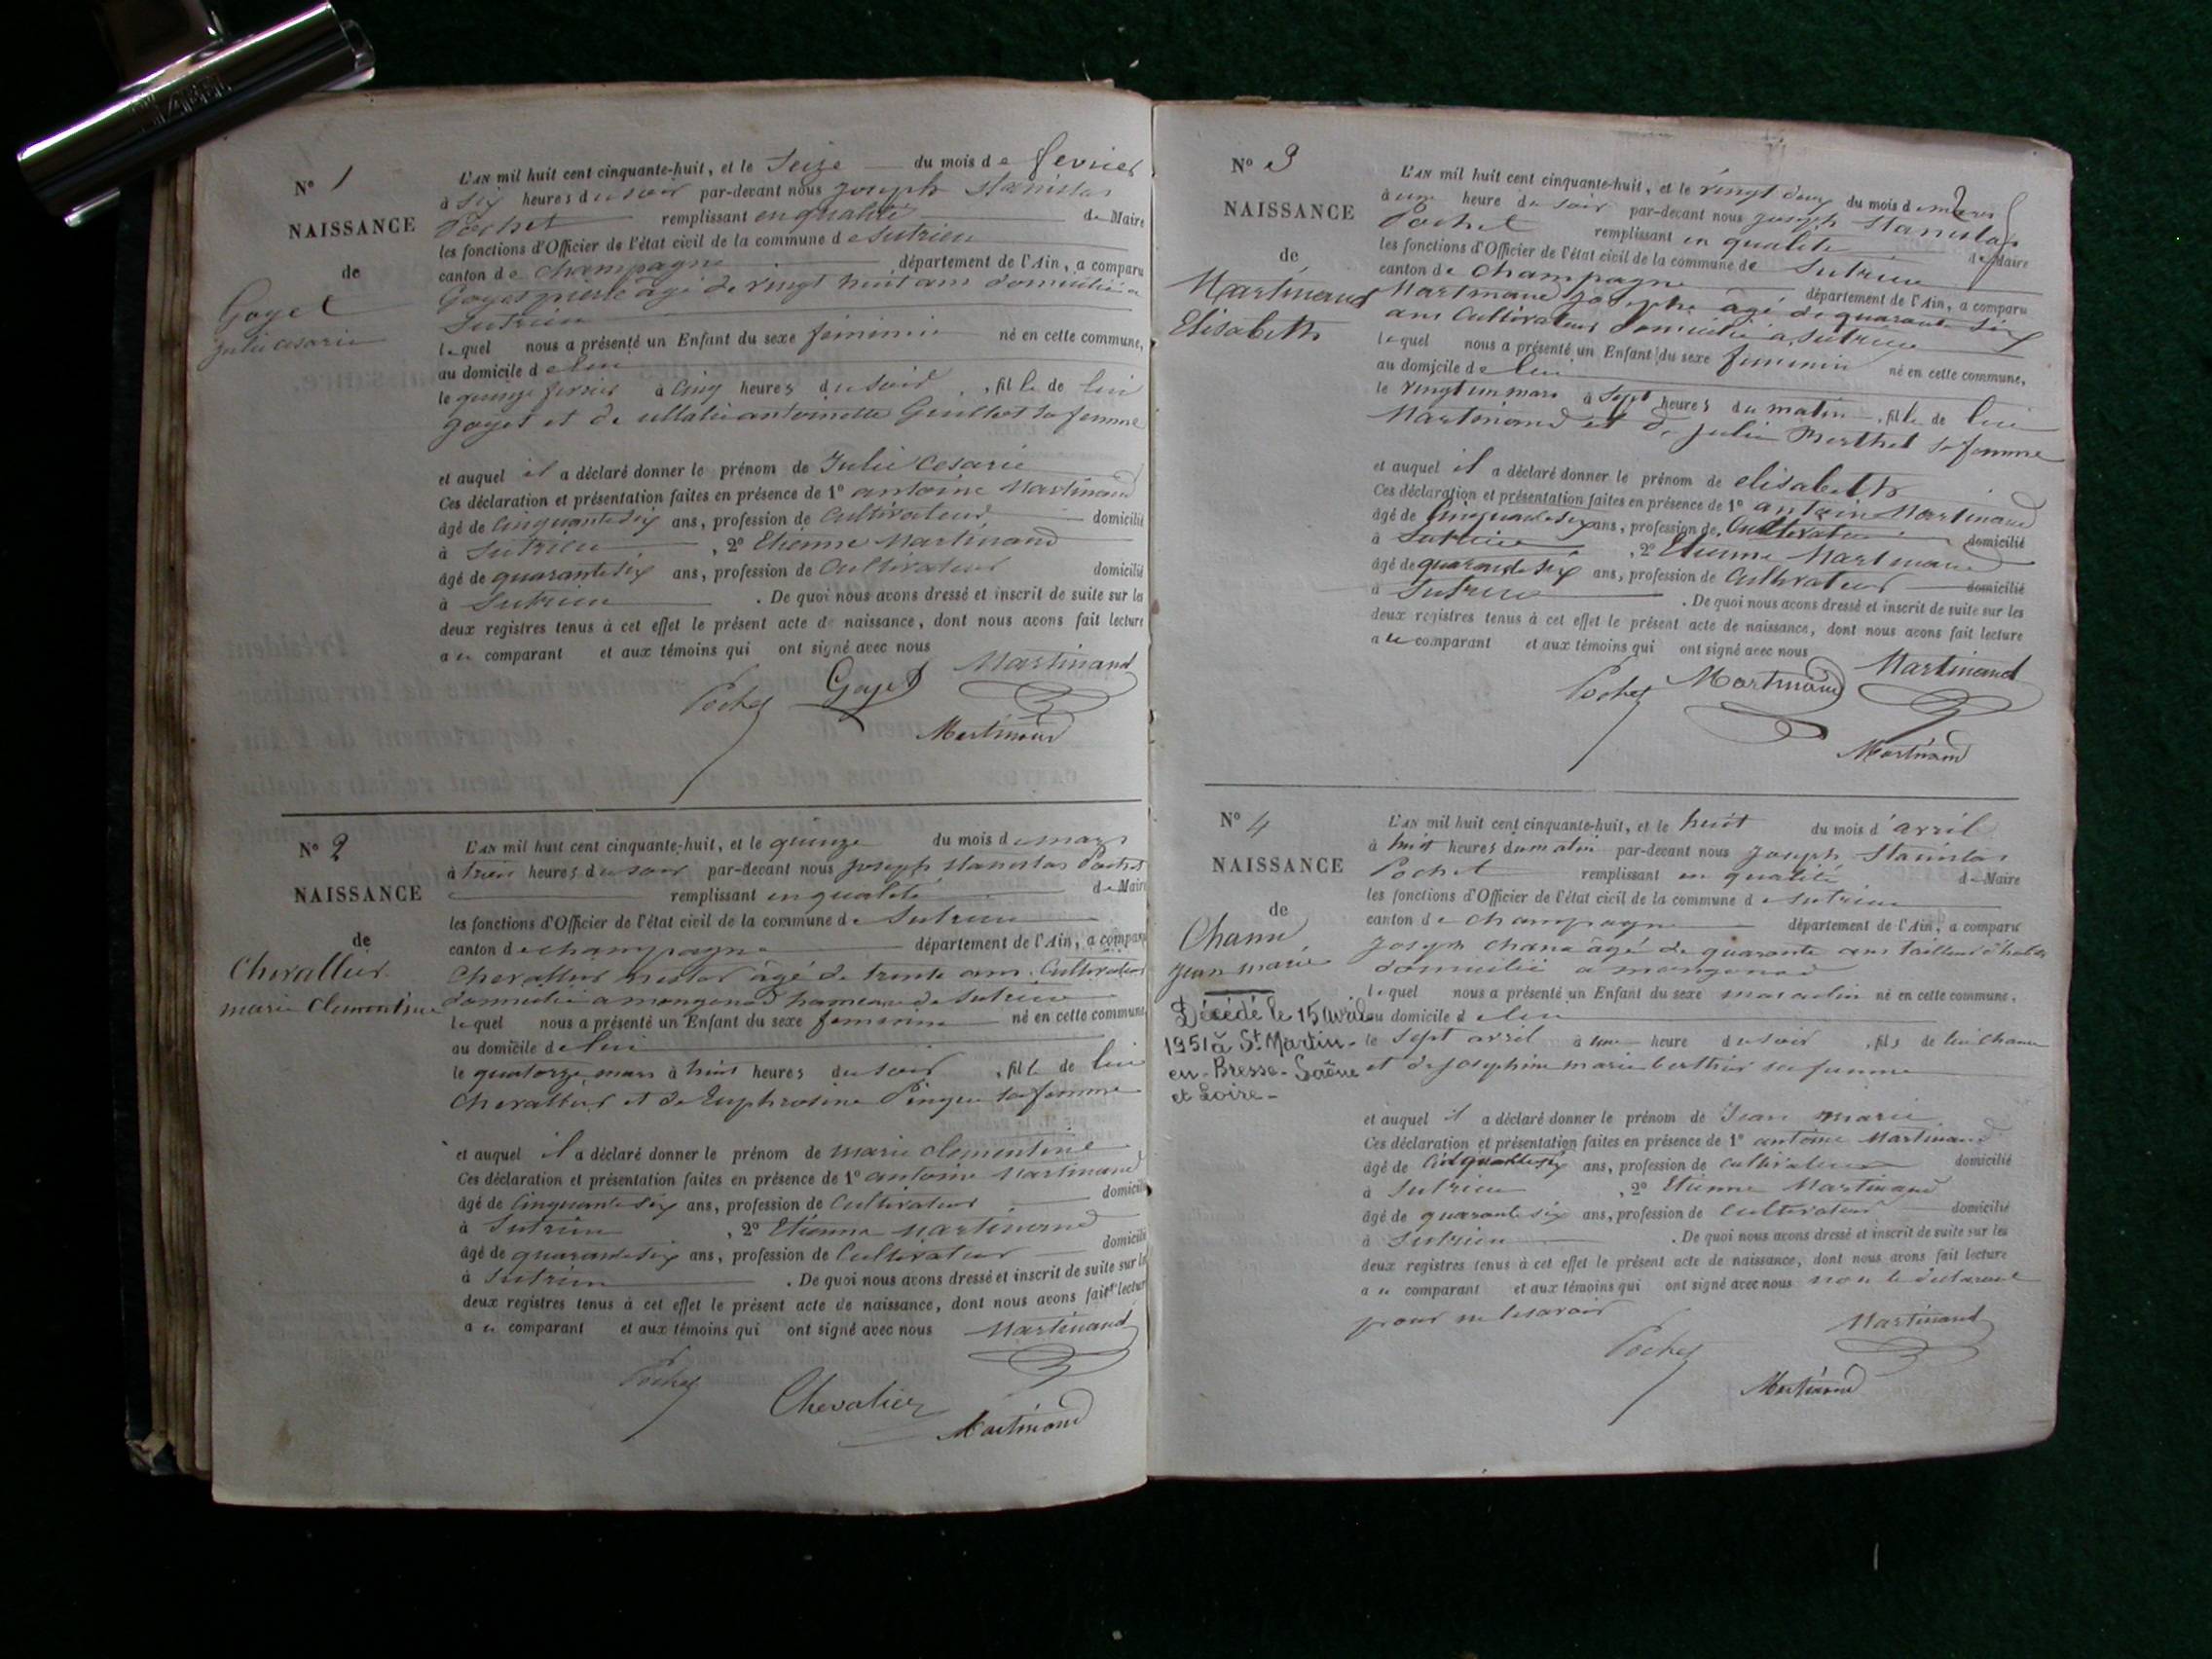 N° 1
NAISSANCE
de
Goyet
julie cesarie
L'AN mil huit cent cinquante-huit, et le Seize du mois de fevrier
à six heures du soir par-devant nous joseph Stanislas
Pochet remplissant en qualité de Maire
les fonctions d'Officier de l'état civil de la commune de Sutrieu
canton de champagne département de l'Ain, a comparu
Goyet âgé de vingt huit ans domicilié a
Sutrieu
lequel nous a présenté un Enfant du sexe féminin né en cette commune,
au domicile de lui
le quinze fevrier à Cinq heures du soir, fille de lui
goyet et de antoinette Guillot sa femme
et auquel il a déclaré donner le prénom de Julie Cesarie
Ces déclaration et présentation faites en présence de 1° antoine Martinand
âgé de Cinquante six ans, profession de Cultivateur domicilié
à Sutrieu, 2° Etienne Martinand
âgé de quarante six ans, profession de Cultivateur domicilié
à Sutrieu. De quoi nous avons dressé et inscrit de suite sur les
deux registres tenus à cet effet le présent acte de naissance, dont nous avons fait lecture
au comparant et aux témoins qui ont signé avec nous
Pochet Goyet Martinand
Martinand
N° 2
NAISSANCE
de
Chevallier
marie Clementine
L'AN mil huit cent cinquante-huit, et le quinze du mois de mars
à trois heures du soir par-devant nous joseph stanislas Pochet
remplissant en qualité de Maire
les fonctions d'Officier de l'état civil de la commune de Sutrieu
canton de champagne département de l'Ain, a comparu
Chevallier nestor âgé de trente ans Cultivateur
domicilié a mongonod hameau de Sutrieu
lequel nous a présenté un Enfant du sexe feminin né en cette commune
au domicile de lui
le quatorze mars à huit heures du soir, fille de lui
Chevallier et de Euphrosine Pingeu sa femme
et auquel il a déclaré donner le prénom de marie clementine
Ces déclaration et présentation faites en présence de 1° antoine Martinand
âgé de Cinquante six ans, profession de Cultivateur domicilié
à Sutrieu, 2° Etienne Martinand
âgé de quarante six ans, profession de Cultivateur domicilié
à Sutrieu. De quoi nous avons dressé et inscrit de suite sur les
deux registres tenus à cet effet le présent acte de naissance, dont nous avons fait lecture
au comparant et aux témoins qui ont signé avec nous Martinand
Pochet Chevalier Martinand
N° 3
NAISSANCE
de
Martinand
Elisabeth
L'AN mil huit cent cinquante-huit, et le vingt deux du mois de mars
à une heure du soir par-devant nous joseph Stanislas
Pochet remplissant en qualité de Maire
les fonctions d'Officier de l'état civil de la commune de Sutrieu
canton de champagne département de l'Ain, a comparu
Martinand josephe âgé de quarante six
ans Cultivateur domicilié a Sutrieu
lequel nous a présenté un Enfant du sexe feminin né en cette commune,
au domicile de lui
le vingt un mars à Sept heures du matin, fille de lui
Martinand et de julie Berthet sa femme
et auquel il a déclaré donner le prénom de elisabeth
Ces déclaration et présentation faites en présence de 1° antoine Martinand
âgé de Cinquante six ans, profession de Cultivateur domicilié
à Sutrieu, 2° Etienne Martinand
âgé de quarante six ans, profession de Cultivateur domicilié
à Sutrieu. De quoi nous avons dressé et inscrit de suite sur les
deux registres tenus à cet effet le présent acte de naissance, dont nous avons fait lecture
au comparant et aux témoins qui ont signé avec nous
Pochet Martinand Martinand
Martinand
N° 4
NAISSANCE
de
Chane
jean marie
Décédé le 15 avril
1951 à St Martin-
en-Bresse-Saône
et Loire-
L'AN mil huit cent cinquante-huit, et le huit du mois d'avril
à huit heures du matin par-devant nous joseph Stanislas
Pochet remplissant en qualité de Maire
les fonctions d'Officier de l'état civil de la commune de Sutrieu
canton de champagne département de l'Ain, a comparu
Joseph chane âgé de quarante ans tailleur d'habits
domicilié a mongonod
lequel nous a présenté un Enfant du sexe masculin né en cette commune,
au domicile de lui
le sept avril à une heure du soir, fils de lui chane
et de josephine marie berthier sa femme
et auquel il a déclaré donner le prénom de Jean marie
Ces déclaration et présentation faites en présence de 1° antoine Martinand
âgé de Cinquante six ans, profession de cultivateur domicilié
à Sutrieu, 2° Etienne Martinand
âgé de quarante six ans, profession de Cultivateur domicilié
à Sutrieu. De quoi nous avons dressé et inscrit de suite sur les
deux registres tenus à cet effet le présent acte de naissance, dont nous avons fait lecture
au comparant et aux témoins qui ont signé avec nous non le déclarant
pour ne le savoir
Pochet Martinand
Martinand